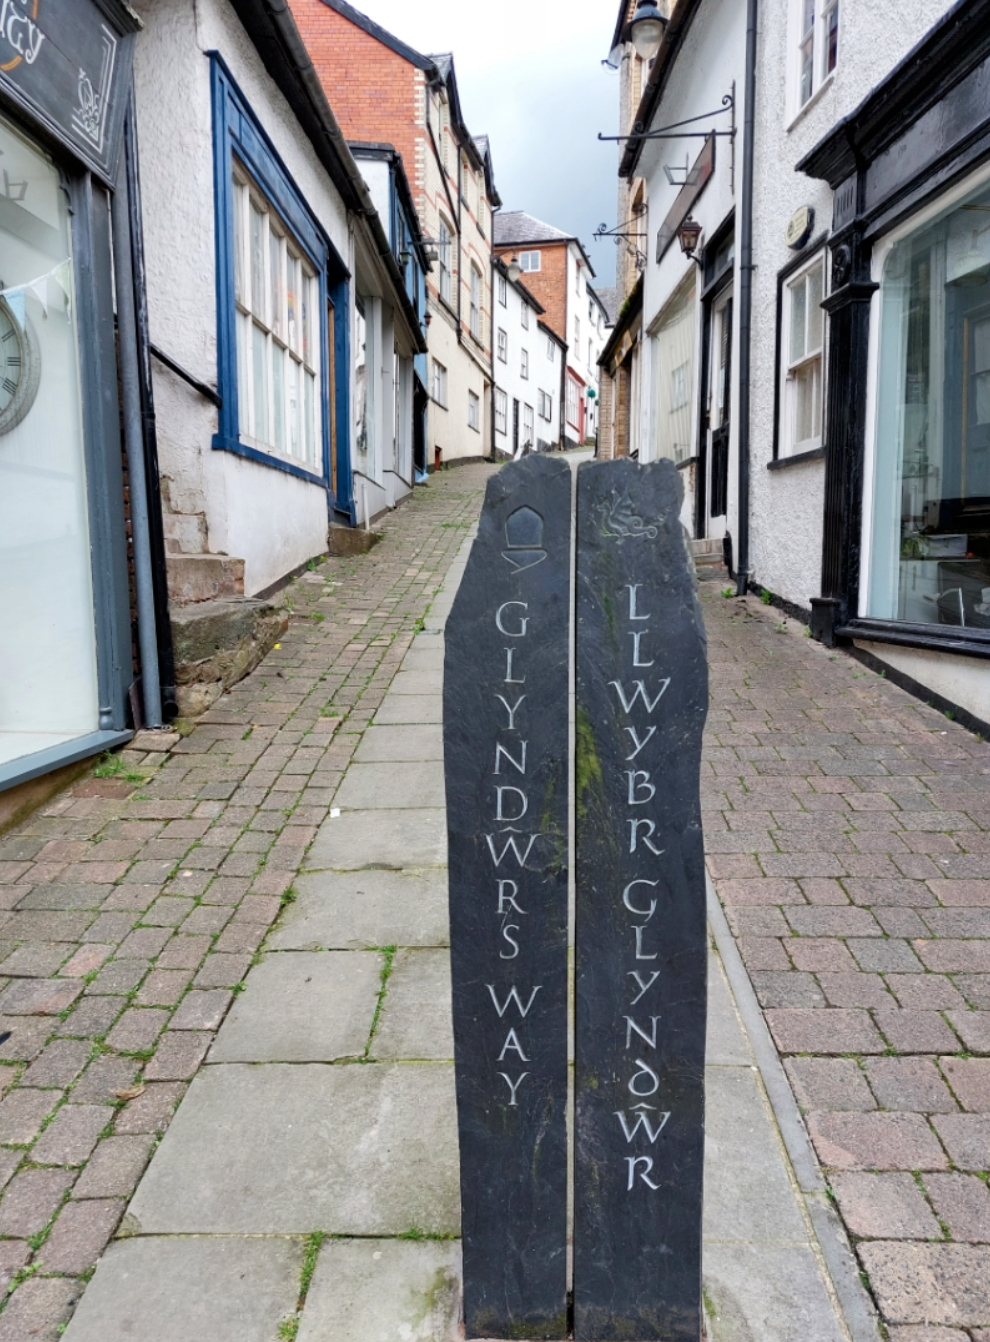 GLYNDŴR'S WAY
LLWYBR GLYNDŴR